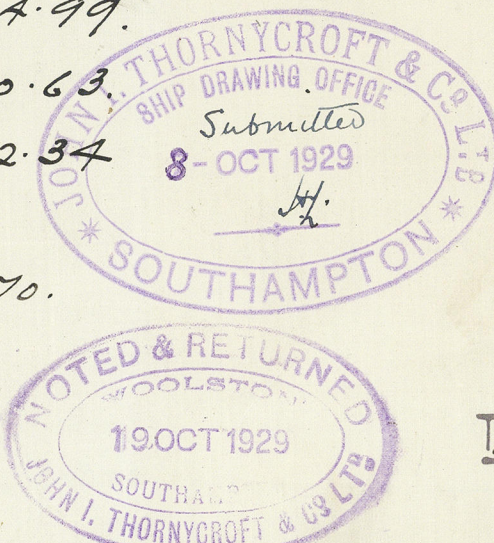 4.99.
0.63.
2.34
70.
JOHN I. THORNYCROFT & Co LTD
SHIP DRAWING OFFICE
Submitted
8-OCT 1929
* SOUTHAMPTON *
NOTED & RETURNED
WOOLSTON
19.OCT 1929
SOUTHAMP
JOHN I. THORNYCROFT & Co LTD